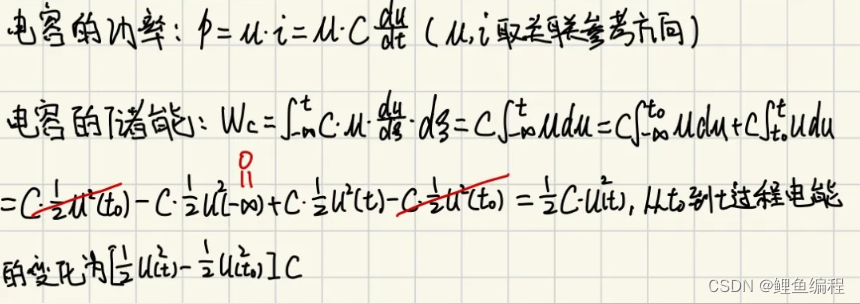 电容的功率: p=u·i=u·C du/dt (u,i取关联参考方向)
电容的储能: Wc=∫_{-∞}^{t} C·u·du/dξ·dξ=C∫_{-∞}^{t} u du=C∫_{-∞}^{t₀} u du+C∫_{t₀}^{t} u du
0
=C·½u²(t₀)-C·½u²(-∞)+C·½u²(t)-C·½u²(t₀)=½C·u²(t), 从t₀到t过程电能
的变化为[½u²(t)-½u²(t₀)]C
CSDN @鲤鱼编程